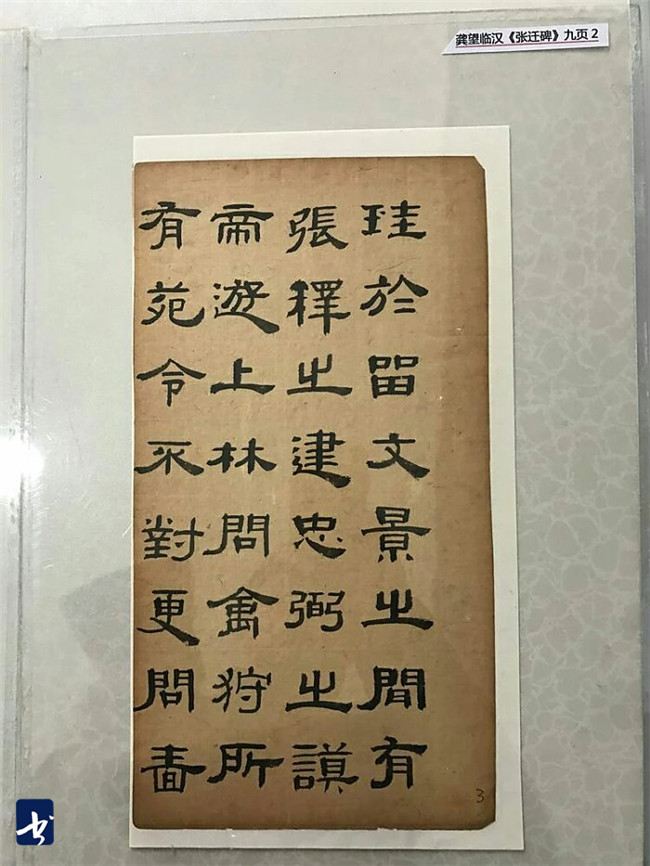 龚望临汉《张迁碑》九页 2
珪於留文景之間有
張釋之建忠弼之謨
帝遊上林問禽狩所
有苑令不對更問嗇
3